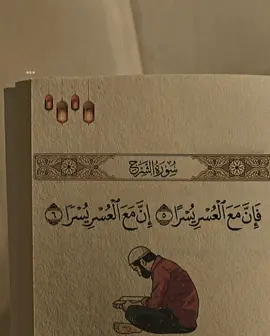 سُورَةُ الشَّرْحِ
فَإِنَّ مَعَ ٱلْعُسْرِ يُسْرًا ٥ إِنَّ مَعَ ٱلْعُسْرِ يُسْرًا ٦